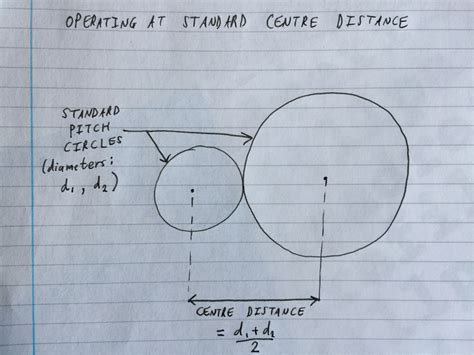 OPERATING AT STANDARD CENTRE DISTANCE
STANDARD
PITCH
CIRCLES
(diameters:
d₁, d₂)
CENTRE DISTANCE
= d₁ + d₂
2